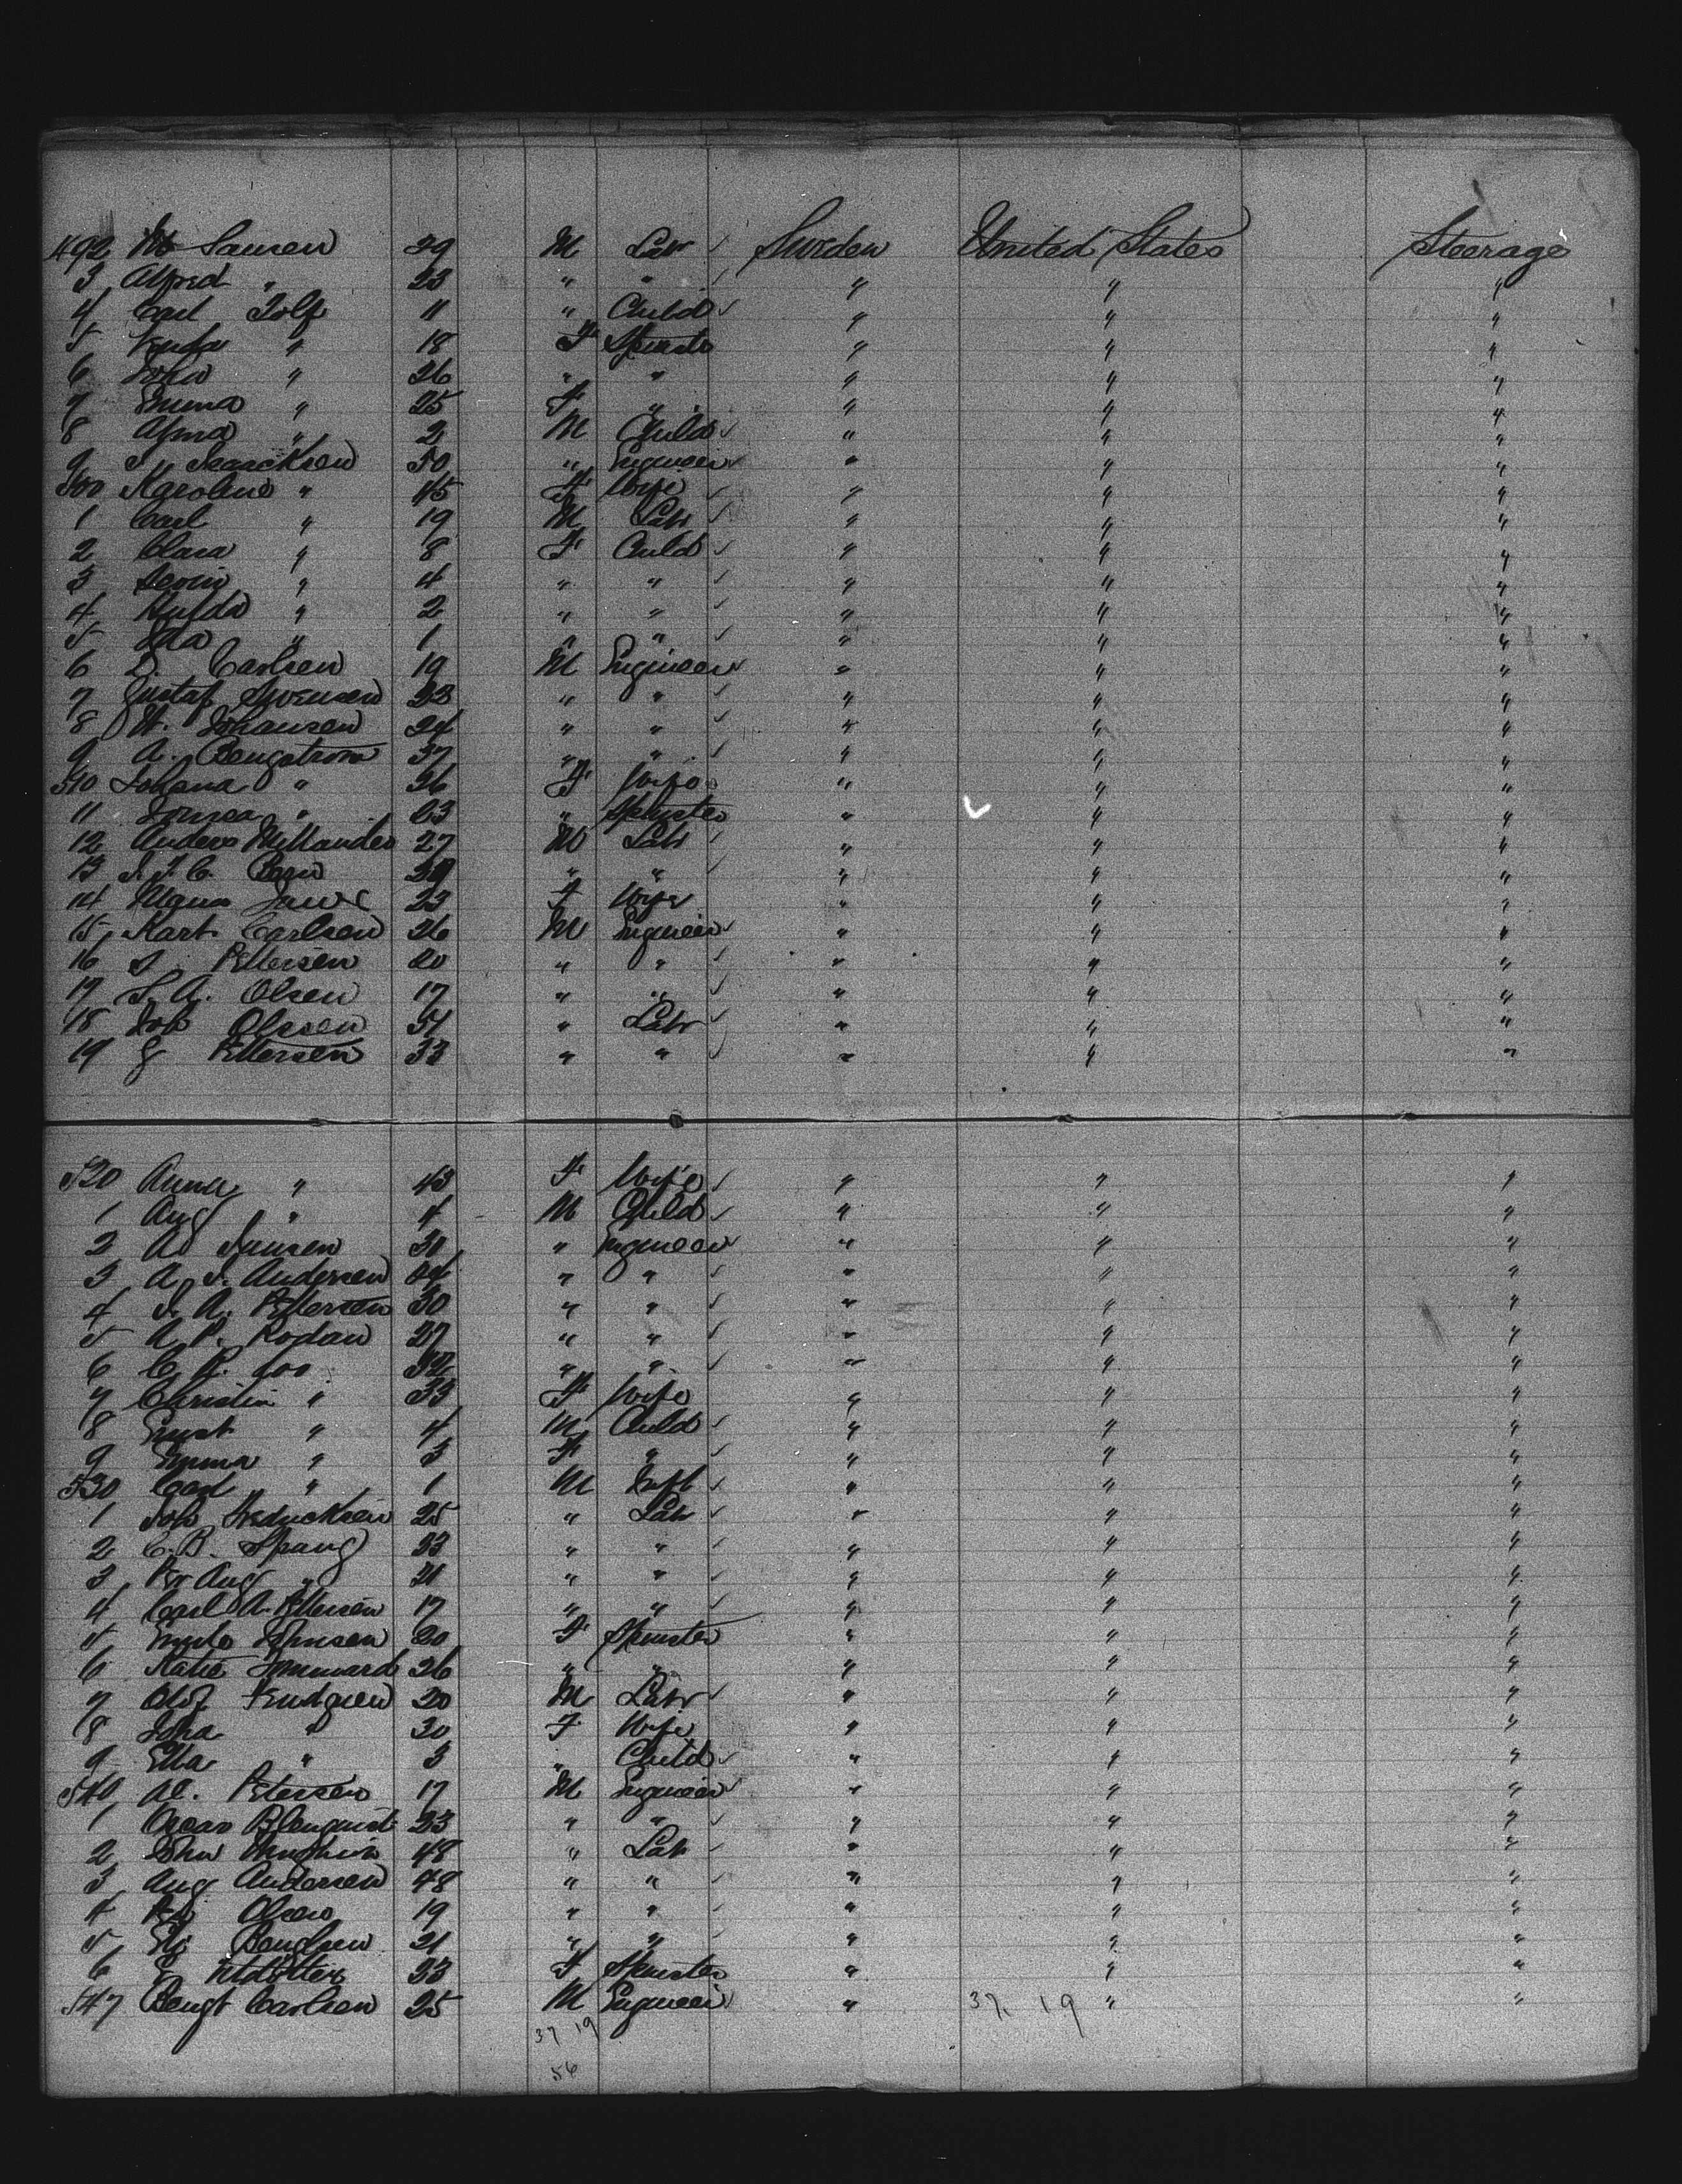 492 Sansen 29 M Labr ✓ Sweden United States Steerage
3 Alfred " 23 " " ✓ " " "
4 Carl Tolf 11 " Child ✓ " " "
5 " 18 F Spinster " " "
6 John " 26 " " " " "
7 Emma " 25 F " " " "
8 Alma " 2 M Child ✓ " " "
9 Isaacksen 50 " Engineer ✓ " " "
500 Karoline " 45 F Wife ✓ " " "
1 Carl " 19 M Labr ✓ " " "
2 Clara " 8 F Child ✓ " " "
3 " 4 " " ✓ " " "
4 Hulda " 2 " " ✓ " " "
5 Ida " 1 " " ✓ " " "
6 Carlsen 19 M Engineer ✓ " " "
7 Gustaf Swensen 23 " " ✓ " " "
8 Johansen 24 " " ✓ " " "
9 A. Bengstrom 37 " " ✓ " " "
510 Johana " 26 F Wife " " "
11 " 23 " Spinster " " "
12 Anders 27 M Labr ✓ " " "
13 " " ✓ " " "
14 23 F Wife " " "
15 Karl Carlsen 26 M Engineer ✓ " " "
16 Pettersen 20 " " ✓ " " "
17 S. A. Olsen 17 " " ✓ " " "
18 Joh Olssen " Labr ✓ " " "
19 G Pettersen 33 " " ✓ " " "
520 Anna " 43 F Wife ✓ " " "
1 Aug " 4 M Child ✓ " " "
2 Jansen 30 " Engineer ✓ " " "
3 A. J. Andersen " " ✓ " " "
4 J. A. Pettersen 30 " " ✓ " " "
5 A. P. Rodan 27 " " ✓ " " "
6 C. P. 32 " " ✓ " " "
7 Christin " 33 F Wife " " "
8 Ernst " 4 M Child ✓ " " "
9 Emma " 3 F " ✓ " " "
530 Carl " 1 M Inft ✓ " " "
1 Joh Fredricksen 25 " Labr ✓ " " "
2 C. B. Spang 23 " " ✓ " " "
3 Per Aug " 21 " " ✓ " " "
4 Carl A. Pettersen 17 " " ✓ " " "
5 Johnsen 20 F Spinster " " "
6 Katie 26 " " " " "
7 Olof 20 M Labr ✓ " " "
8 " 20 F Wife " " "
9 Ella " 3 " Child ✓ " " "
540 Al. Petersen 17 M Engineer ✓ " " "
1 Oscar Blenquist 23 " " ✓ " " "
2 John 48 " Labr ✓ " " "
3 Aug Andersen 48 " " ✓ " " "
4 Olsen 19 " " ✓ " " "
5 Bengtsen 21 " " ✓ " " "
6 23 F Spinster " " "
547 Bengt Carlsen 25 M Engineer " 37 19 " "
37 19
56